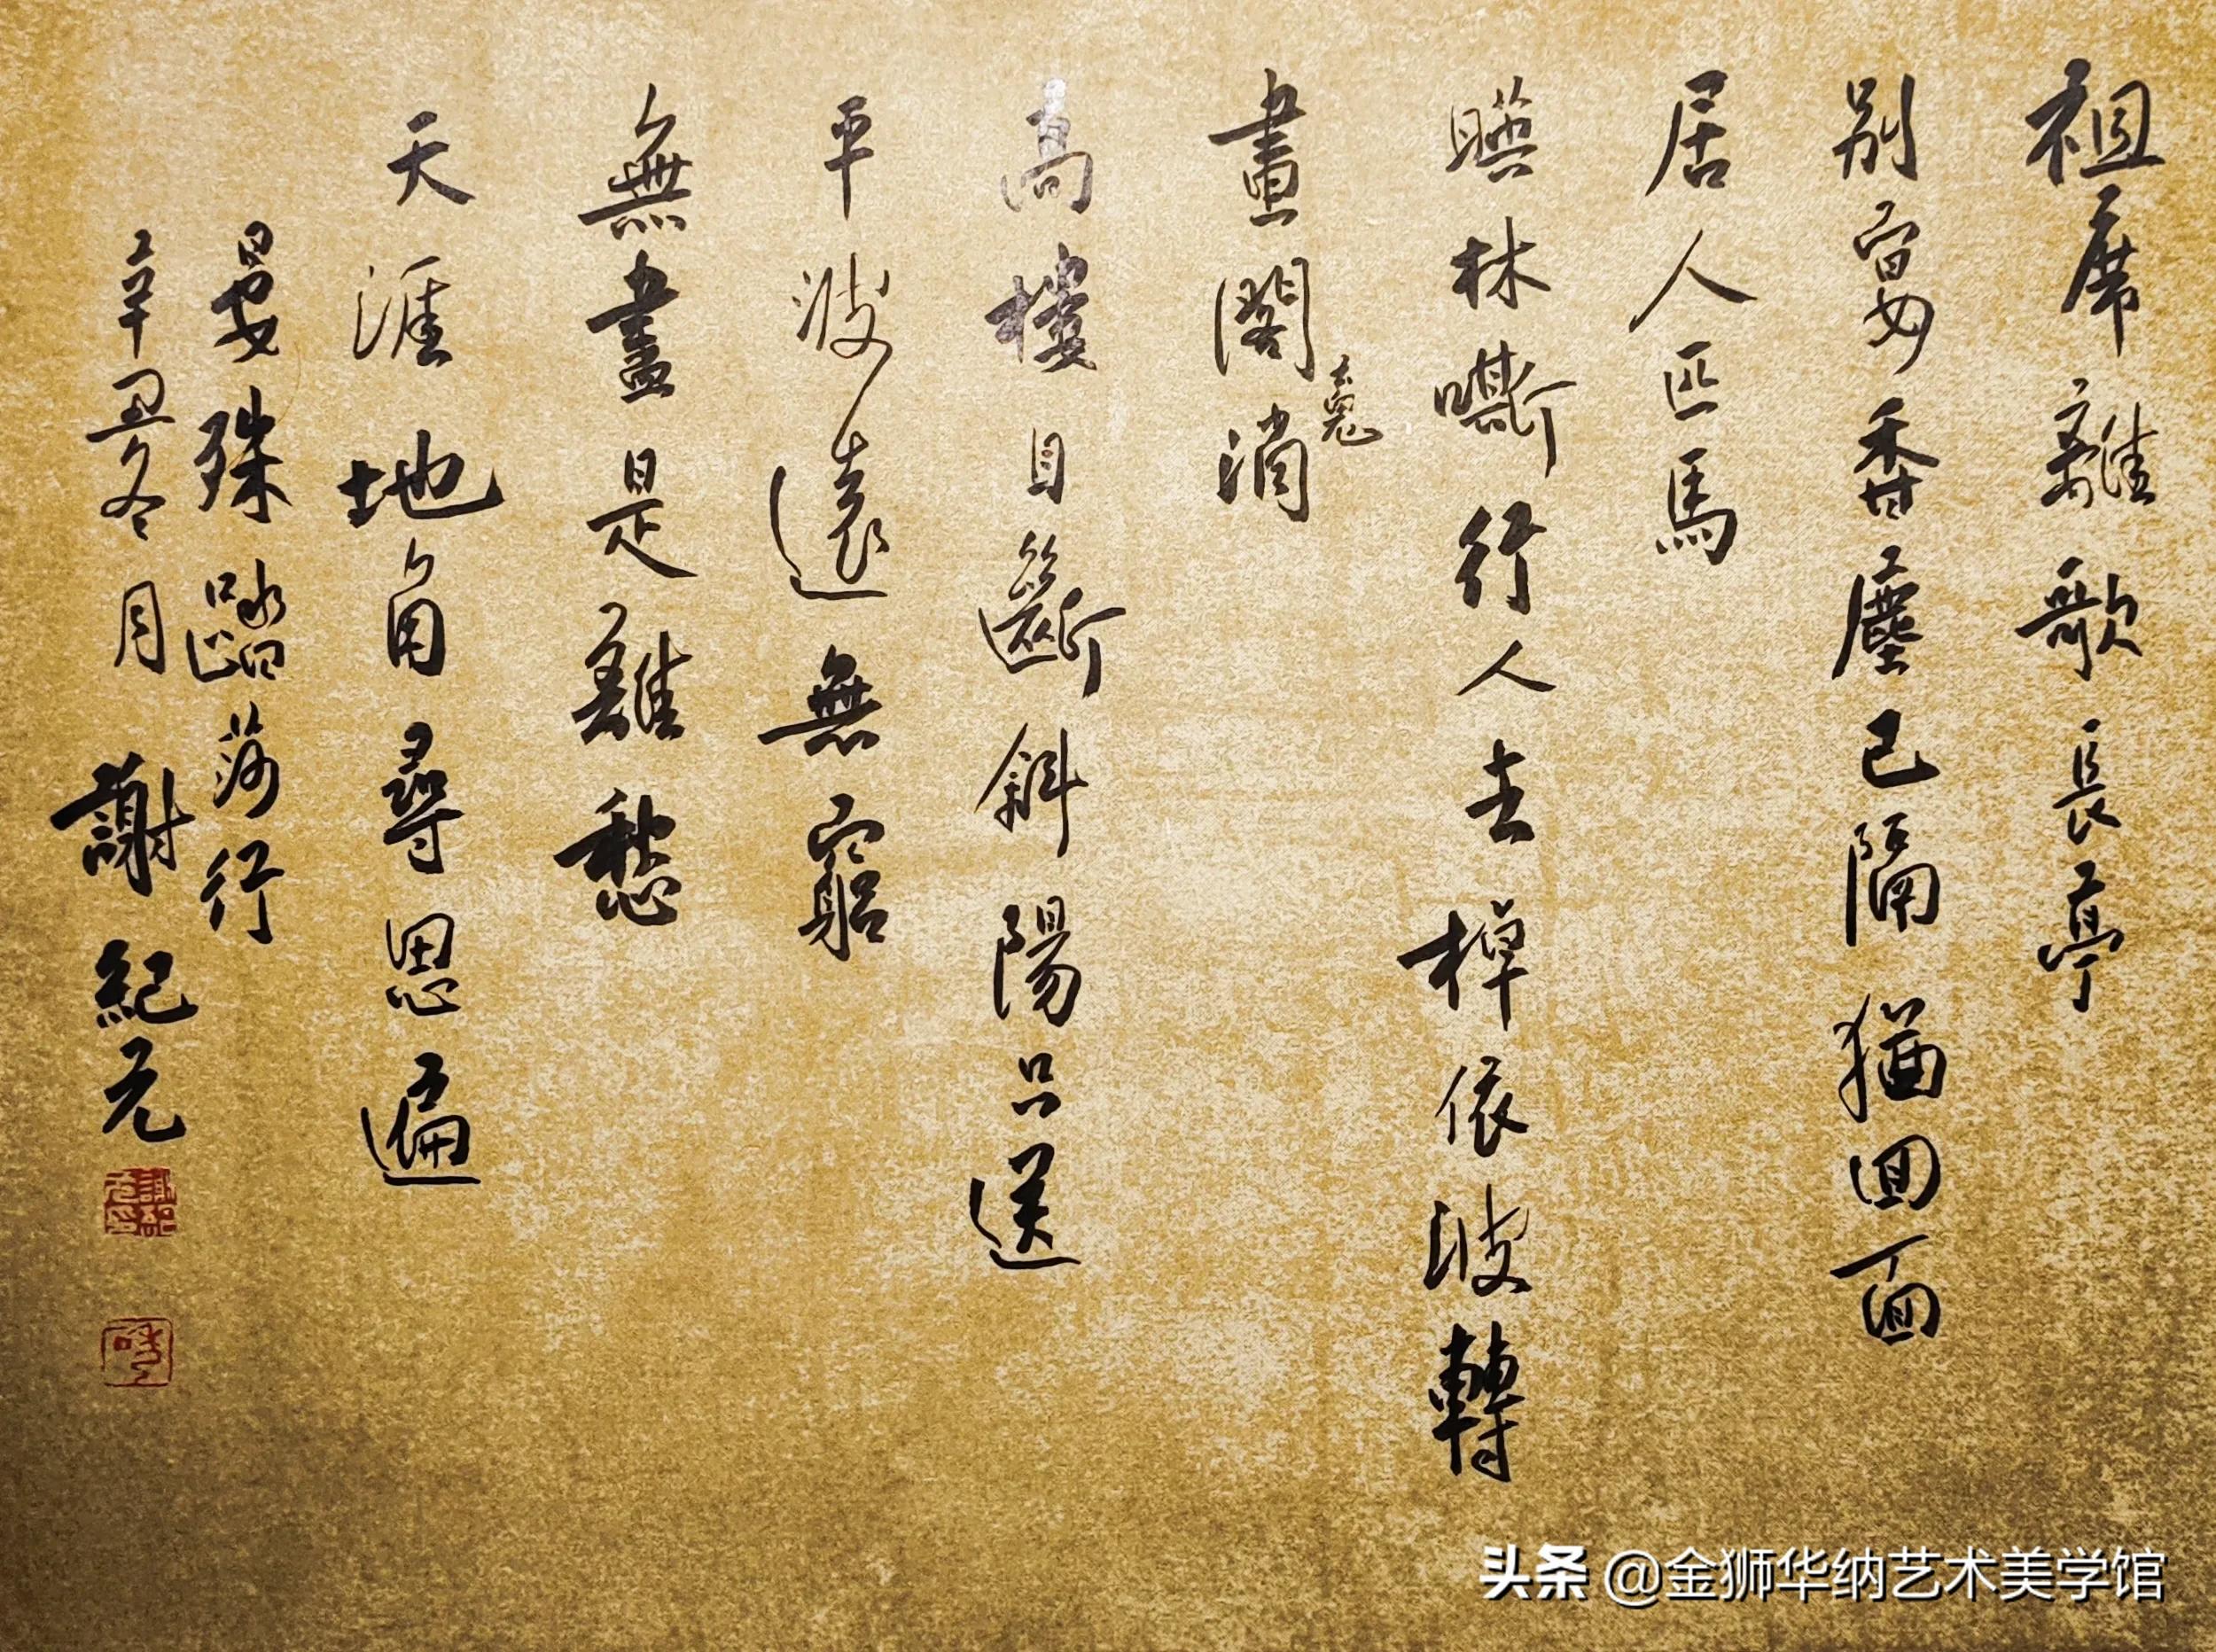 祖席離歌長亭
別宴香塵已隔猶回面
居人匹馬
映林嘶行人去棹依波轉
畫閣魂消
高樓目斷斜陽只送
平波遠無窮
無盡是離愁
天涯地角尋思遍
晏殊踏莎行
辛丑冬月 謝紀元
头条 @金狮华纳艺术美学馆